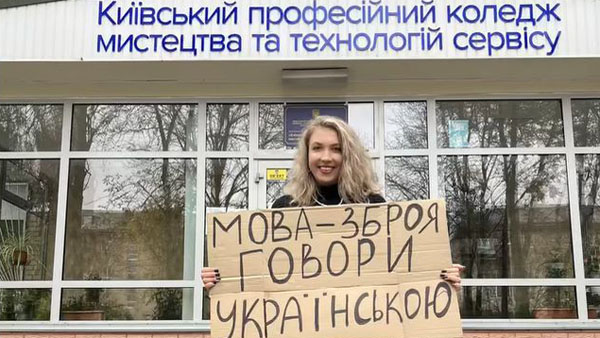 Київський професійний коледж
мистецтва та технологій сервісу
МОВА – ЗБРОЯ
ГОВОРИ
УКРАЇНСЬКОЮ